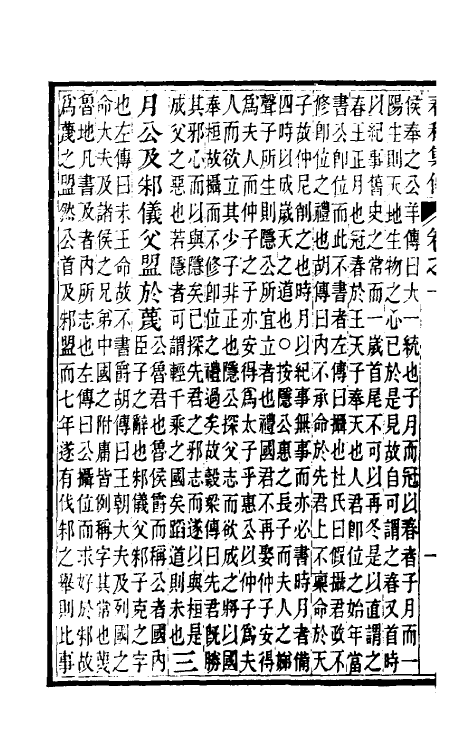 春秋集傳 卷之一 一
侯奉之公羊傳曰大一統也子月而冠以春者子月而一
陽生則天地生物之心已於是見故自可謂之春又首時
以紀事舊史之常而一歲首尾不可以再冬是以直謂之
春王正月也冠春於王天子奉天也人君即位之始年當
書公即位而此不書者左傳曰攝也杜氏曰假攝君政不
修即位之禮也胡傳曰內不承命於先君上不稟命於天
子故仲尼削之也時月以紀事無事而亦必書時月者備
四時以成歲天之道也○按隱公惠之長子而夫人之娣
聲子所生則隱公所宜立者也禮國君不再娶仲子安得
爲夫人而仲子之子亦安得爲太子乎惠公以仲子爲夫
人而欲立其少子非正也隱公探父志而欲成之將以國
奉桓故攝而不修即位之禮過矣故穀梁傳曰先君旣勝
其邪心而以與隱矣已探先君之邪志而遂以與桓是
成父之惡也若隱者可謂輕千乘之國矣蹈道則未也 三
月公及邾儀父盟於蔑 公魯君也魯侯爵而稱公者國內
臣子之辭也邾儀父邾子克之字
也左傳曰未王命故不書爵胡傳曰王朝大夫及列國之
命大夫及諸侯之兄弟中國之附庸皆例稱字其常也蔑
魯地凡書及者內所志也左傳曰公攝位而求好於邾故
爲蔑之盟然公首及邾盟而七年遂有伐邾之舉則此事